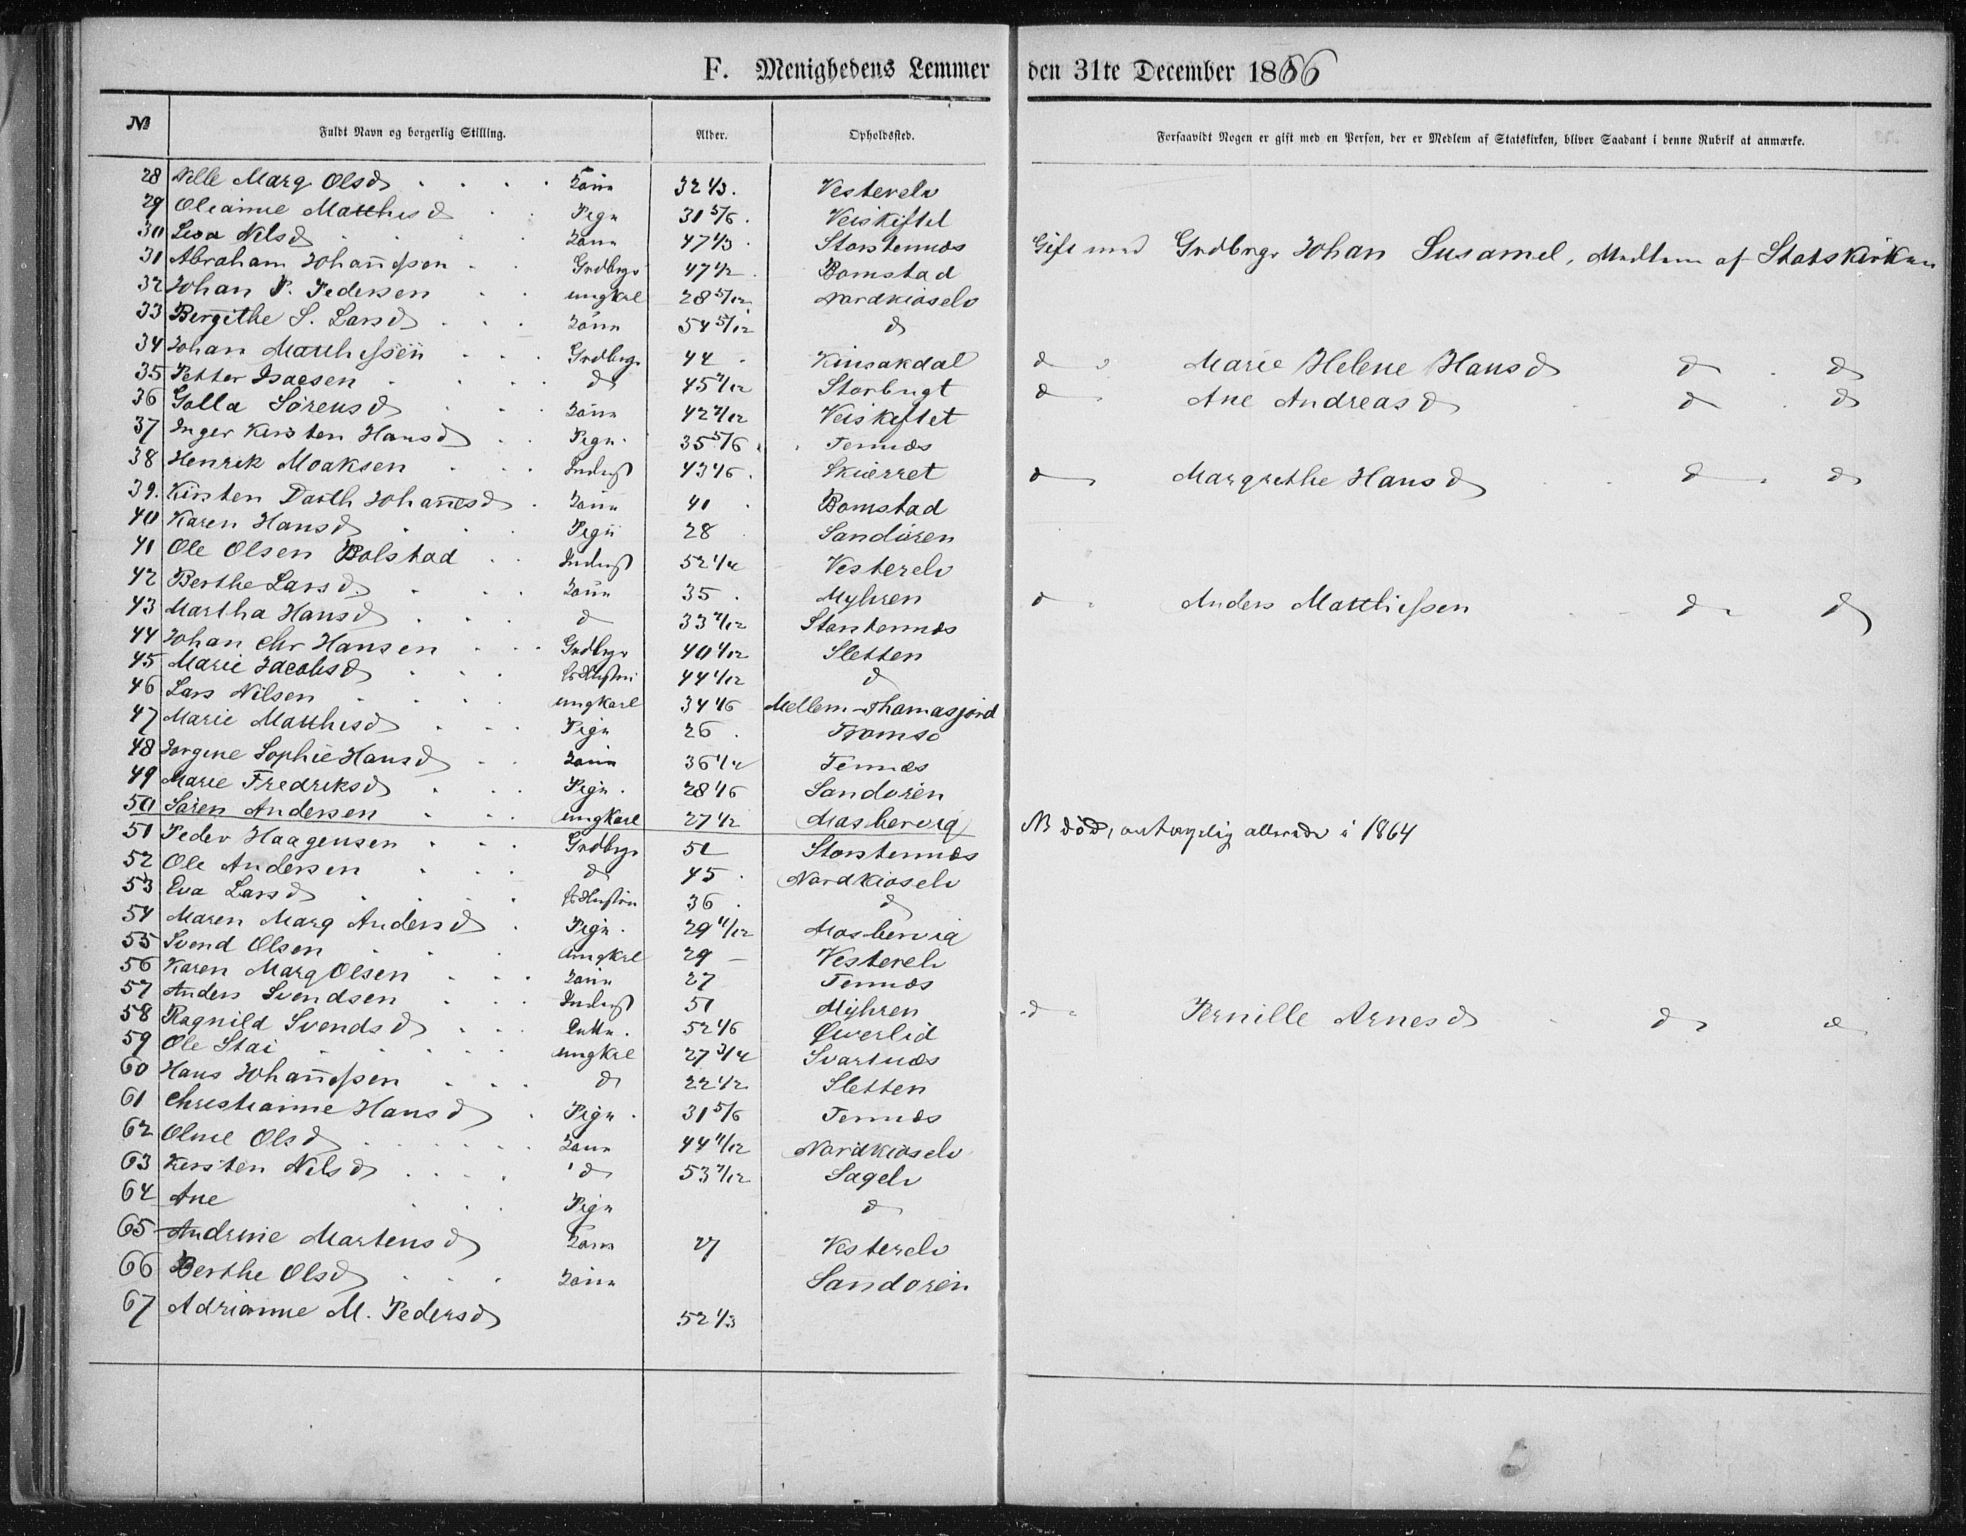 F. Menighedens Lemmer den 31te December 1866
№ Fuldt Navn og borgerlig Stilling. Alder. Opholdssted. Forsaavidt Nogen er gift med en Person, der er Medlem af Statskirken, bliver Saadant i denne Rubrik at anmærke.
28 Nille Marg Olsd Kone 32 1/3 Vesterelv
29 Oleanne Matthisd Pige 31 5/6 Veiskiftet
30 Lisa Nilsd Kone 47 1/3 Storstennæs Gift med Grdbrgr Johan Susamel, Medlem af Statskirken
31 Abraham Johannessen Grdbrgr 47 1/2 Bomstad
32 Johan P. Pedersen ungkal 28 5/12 Nordkioselv
33 Bergithe S. Larsd Kone 54 5/12 d
34 Johan Matthissen Grdbrgr 44 Kinsakdal d Marie Helene Hansd d d
35 Petter Isacsen d 45 7/12 Storbugt d Ane Andreasd d d
36 Golla Sørensd Kone 42 7/12 Veiskiftet
37 Inger Kirsten Hansd Pige 35 5/6 Tennæs
38 Henrik Moaksen Inderst 43 1/6 Skierret d Margrethe Hansd d d
39. Kirsten Dorth Johannesd Kone 41 Bomstad
40 Karen Hansd Pige 28 Sandøren
41 Ole Olsen Bolstad Inderst 52 1/4 Vesterelv
42 Berthe Larsd. Kone 35 Myhren d Anders Matthissen d d
43 Martha Hansd d 33 7/12 Storstennæs
44 Johan Chr Hansen Grdbrgr 40 1/12 Sletten
45 Marie Jacobsd Hustru 44 1/12 d
46 Lars Nilsen ungkarl 34 1/6 Mellem-Thomasjord
47 Marie Matthisd Pige 26 Tromsø
48 Jorgine Sophie Hansd Kone 36 1/4 Tennæs
49 Marie Fredriksd Pige 28 1/6 Sandøren
50 Søren Andersen ungkarl 27 1/2 Masbervig NB død, antagelig allerede i 1864
51 Peder Haagensen Grdbrgr 51 Storstennæs
52 Ole Andersen d 45 Nordkioselv
53 Eva Larsd Hustru 36 d
54 Maren Marg Andersd Pige 29 11/12 Masbervig
55 Svend Olsen ungkal 29 Vesterelv
56 Karen Marg Olsen Kone 27 Tennæs
57 Anders Svendsen Inderst 51 Myhren d Pernille Arnesd d d
58 Ragnild Svendsd Enke 52 1/6 Øverlid
59 Ole Stai ungkal 27 3/4 Svartnæs
60 Hans Johannessen d 22 1/2 Sletten
61 Christianne Hansd Pige 31 5/6 Tennæs
62 Oline Olsd Kone 44 11/12 Nordkioselv
63 Kirsten Nilsd d 53 7/12 Sagelv
64 Ane Pige d
65 Andrine Martensd Kone 27 Vesterelv
66 Berthe Olsd Kone Sandøren
67 Adrianne M. Pedersd 52 1/3